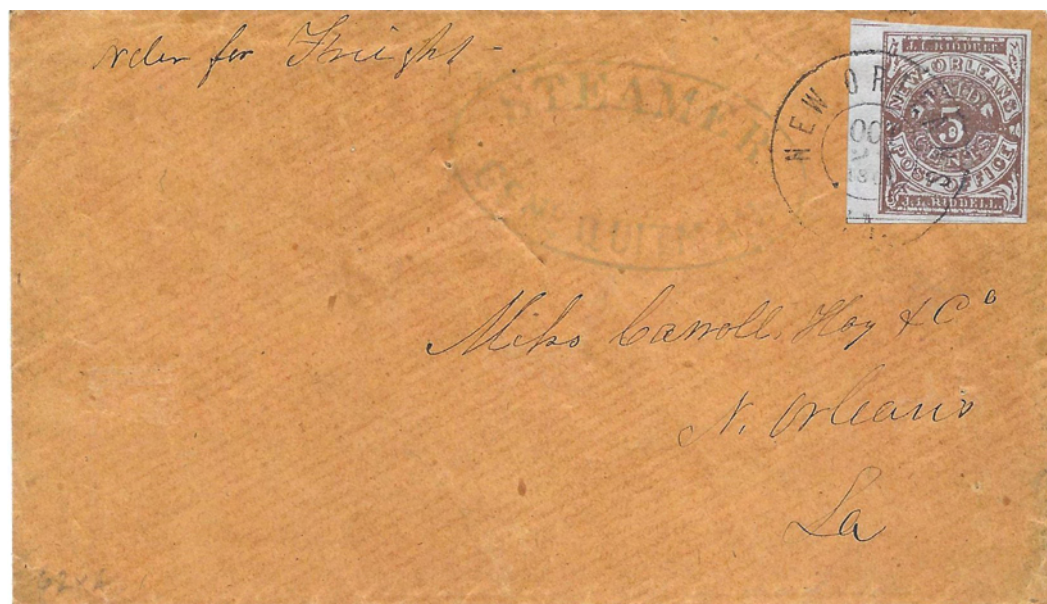 for Freight
STEAMER
QUITMAN
NEW OR
LA.
J.L. RIDDELL.
NEW ORLEANS
PAID
5
CENTS
POST OFFICE
J.L. RIDDELL.
Carroll, Hoy & Co
N. Orleans
La